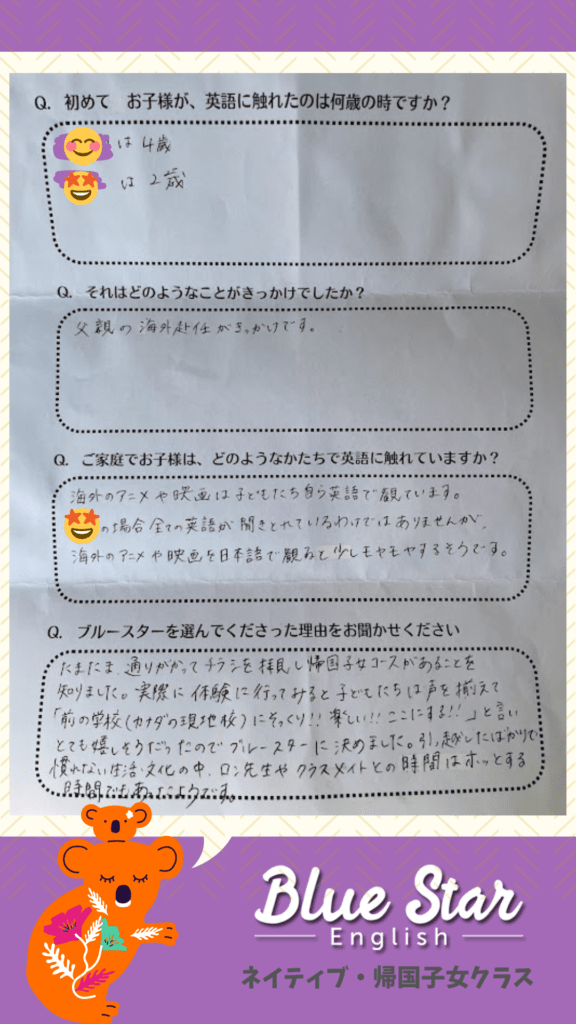 Q. 初めて　お子様が、英語に触れたのは何歳の時ですか？
は 4歳
は 2歳
Q. それはどのようなことがきっかけでしたか？
父親の海外赴任がきっかけです。
Q. ご家庭でお子様は、どのようなかたちで英語に触れていますか？
海外のアニメや映画は子どもたち自ら英語で観ています。
の場合全ての英語が聞きとれているわけではありませんが、
海外のアニメや映画を日本語で観ると少しモヤモヤするそうです。
Q. ブルースターを選んでくださった理由をお聞かせください
たまたま、通りがかってチラシを拝見し帰国子女コースがあることを
知りました。実際に体験に行ってみると子どもたちは声を揃えて
「前の学校(カナダの現地校)にそっくり!! 楽しい!! ここにする!!」と言い
とても嬉しそうだったのでブルースターに決めました。引っ越したばかりで
慣れない生活・文化の中、ロン先生やクラスメイトとの時間はホッとする
時間でもあったようです。
Blue Star
English
ネイティブ・帰国子女クラス